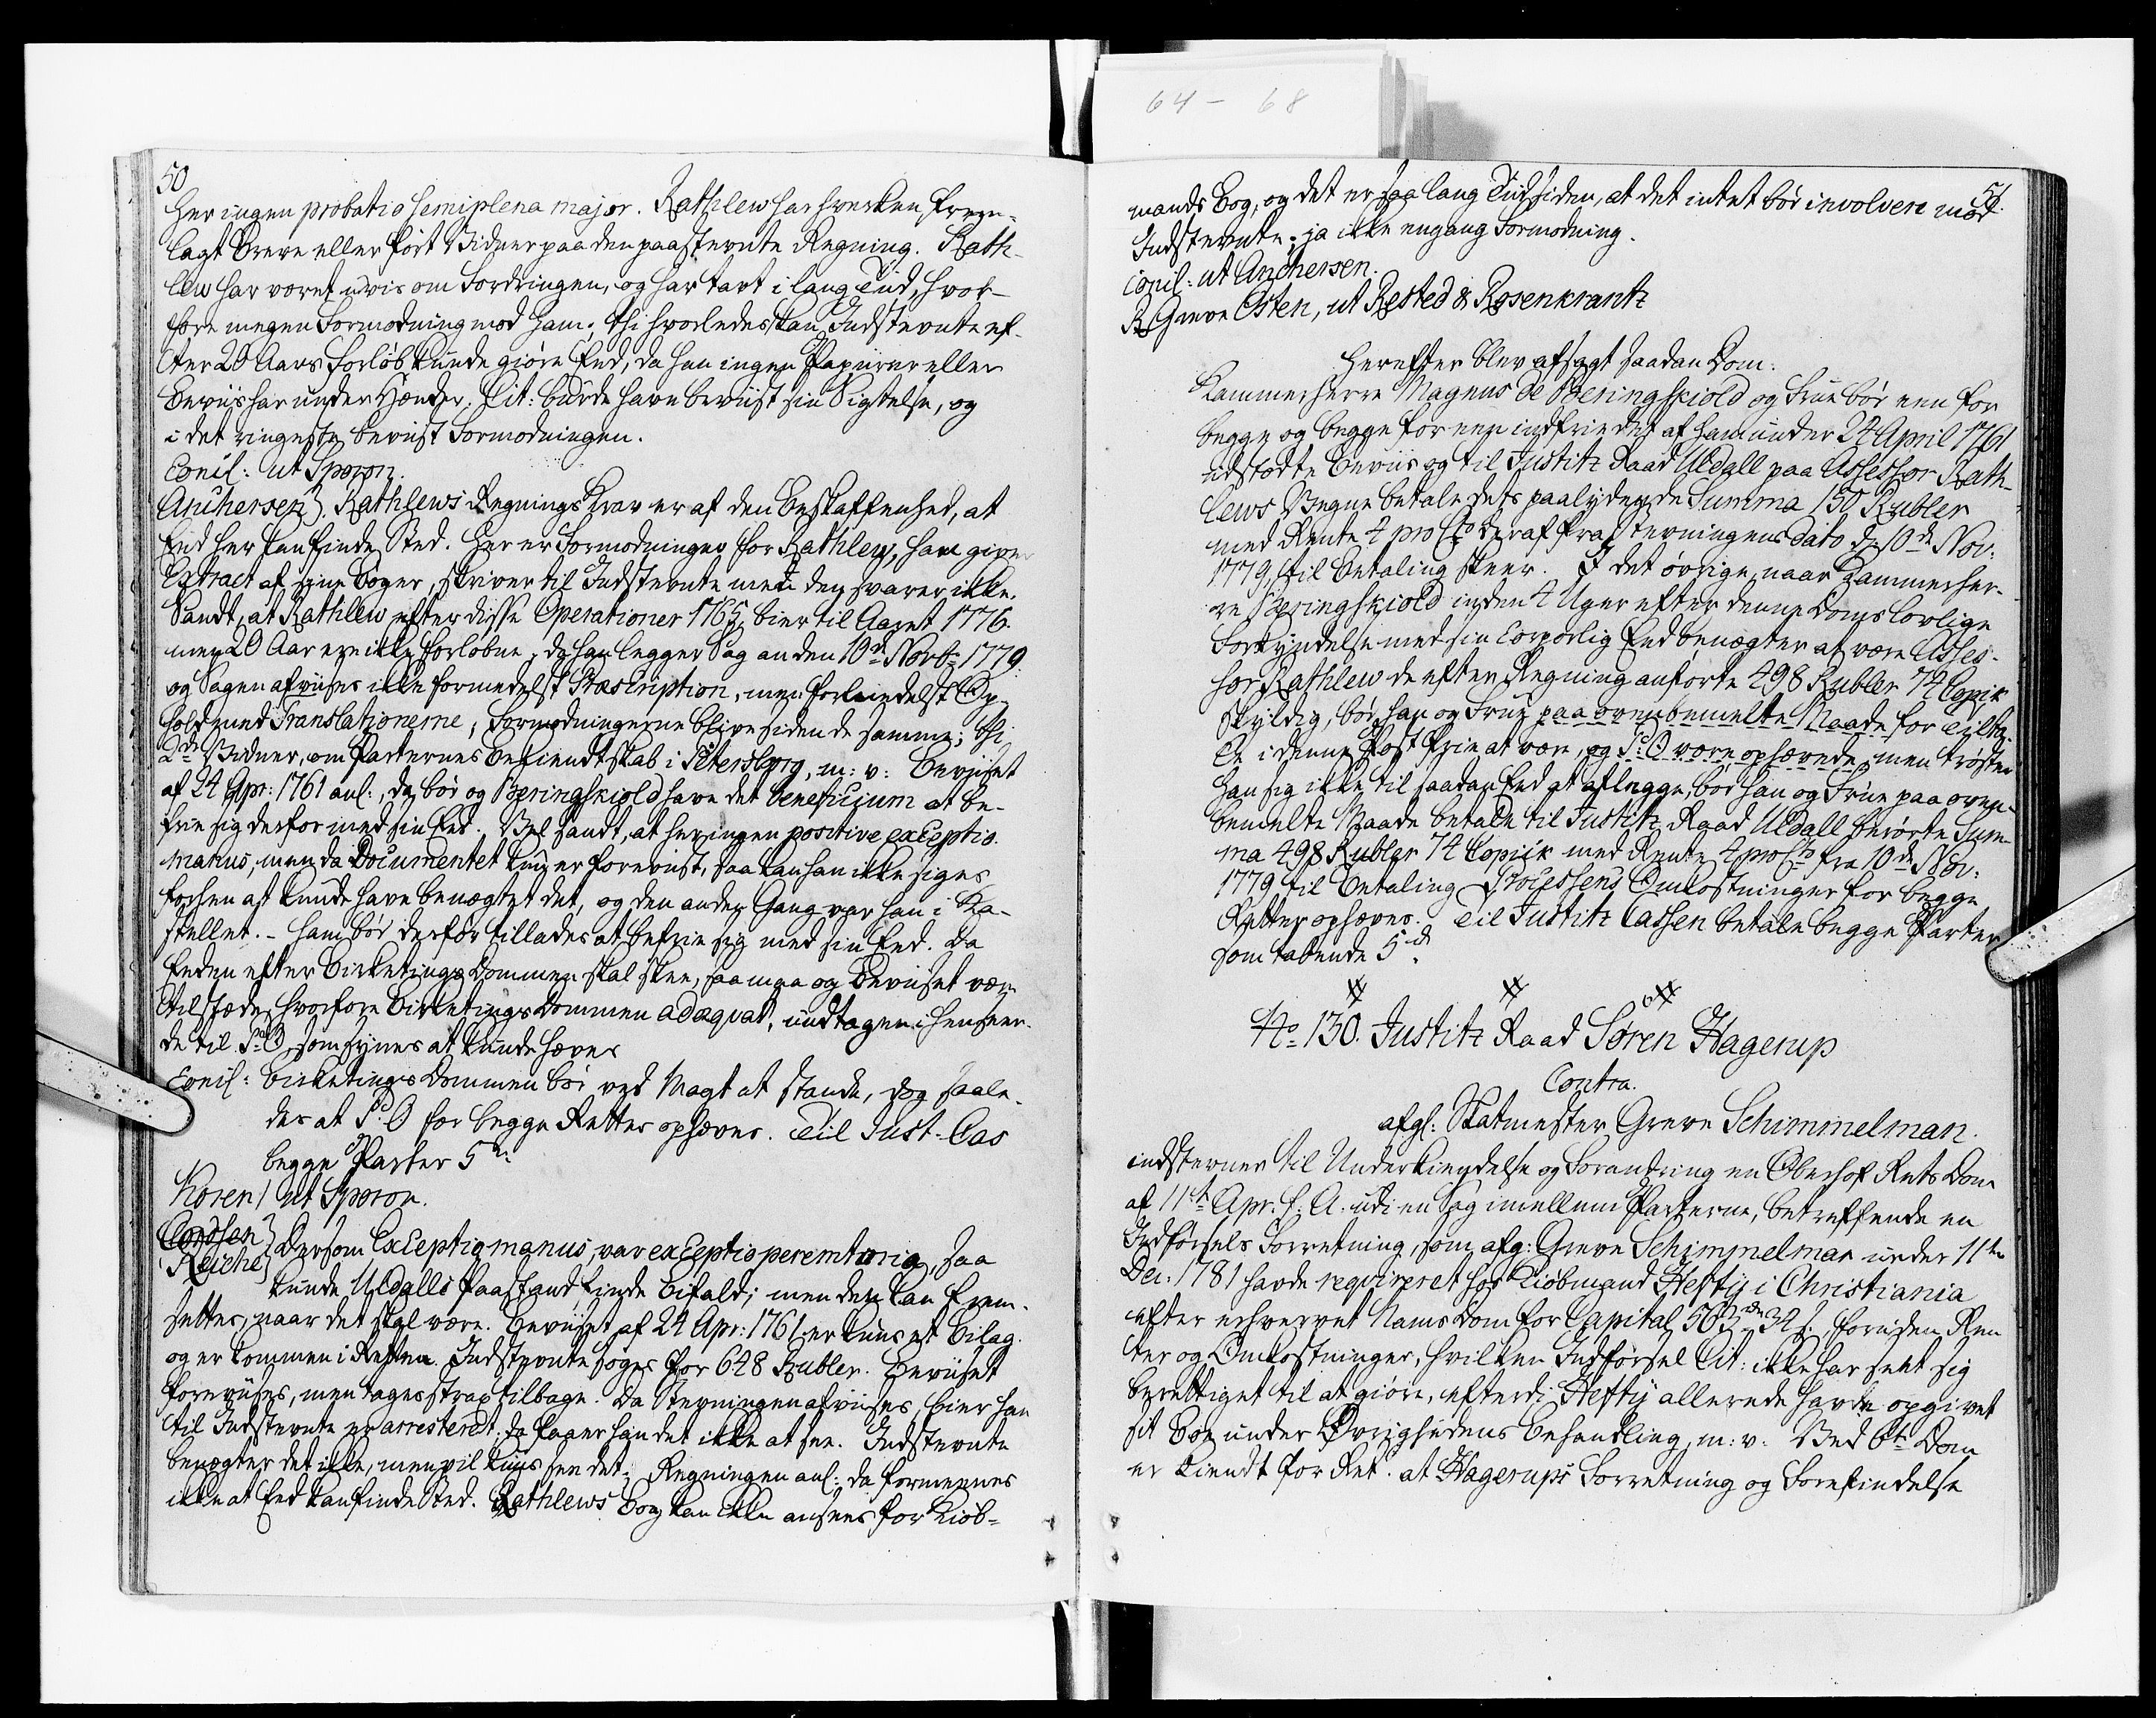 64 - 68
50
her ingen probatio semiplena major. Rathlew har hverken frem-
lagt Breve eller ført Vidner paa den paastevnte Regning. Rath-
lew har været uvis om Fordringen, og har tavt i lang Tid, hvor-
fore megen Formodning mod ham. Thi hvorledes kan Indstevnte ef-
ter 20 Aars Forløb kunde giøre Eed, da han ingen Papiirer eller
Beviis har under Hænder. Cit: burde have beviist sin Sigtelse, og
i det ringeste beviist Formodningen.
Concl: ut Sporon.
Anchersen}. Rathlews Regnings Krav er af den Beskaffenhed, at
Eed her kan finde Sted. Her er Formodninger for Rathlew, ham giver
Extract af sine Bøger, skriver til Indstevnte men den svarer ikke.
Sandt, at Rathlew efter disse Operationer 1765, bier til Aaret 1776.
men 20 Aar ere ikke forløbne, da han legger Sag an den 10de Novbr 1779.
og Sagen afviises ikke formedelst Præscription, men formedelst Op-
hold med Translationerne; Formodningerne blive siden de samme; thi
2de Vidner, om Parternes Bekiendtskab i Petersborg, m: v: Beviiset
af 24 Apr: 1761 anl:, da bør og Beringskiold have det beneficium at be-
frie sig derfor med sin Eed. Vel sandt, at her ingen positive exceptio
manus, men da Documentet kuns er foreviist, saa kan han ikke siges
forhen at kunde have benægtet det, og den anden Gang var han i Ka-
stellet. - Ham bør derfor tillades at befrie sig med sin Eed. Da
Eeden efter Birketings Dommen skal skee, saa maa og Beviiset være
tilstæde, hvorfore Birketings Dommen adæqvat, undtagen i Henseen-
de til P: O som synes at kunde hæves
Concl: Birketings Dommen bør ved Magt at stande, dog saale-
des at P: O for begge Retter ophæves. Til Just. Cas
begge Parter 5 rd:
Koren} ut Sporon.
Cordsen}
Reiche} Dersom Exceptio manus, var exceptio peremtoria, saa
kunde Uldalls Paastand finde Bifald; men den kan frem-
settes, naar det skal være. Beviiset af 24 Apr: 1761 er kuns et Bilag.
og er kommen i Retten. Indstevnte søges for 648 Rubler. Beviiset
foreviises, men tages strax tilbage. Da Stevningen afviises, bier han
til Indstevnte er arresteret; da faaer han det ikke at see. Indstevnte
benægter det ikke, men vil kuns see det. Regningen anl: da formeenes
ikke at Eed kan finde Sted. Rathlews Bog kan ikke ansees for Kiøb-
51.
mands Bog, og det er saa lang Tid siden, at det intet bør involvere mod
Indstevnte; ja ikke engang Formodning.
Concl: ut Anchersen.
R Greve Osten, ut Rested & Rosenkrantz
Herefter blev afsagt saadan Dom:
Kammerherre Magnus de Beringskiold og Frue bør een for
begge og begge for een indfrie det af ham under 24 April 1761
udstædte Beviis og til Justitz Raad Uldall paa Assessor Rath-
lews Vegne betale dets paalydende Summa 150 Rubler
med Rente 4 pro Cto deraf fra Stevningens dato d. 10de Nov:
1779, til Betaling skeer. I det øvrige, naar Kammerher-
re Beringskiold inden 4 Uger efter denne Doms lovlige
Forkyndelse med sin Corporlig Eed benægter at være Asses-
sor Rathlew de efter Regning anførte 498 Rubler 74 Copik
skyldig, bør han og Frue paa ovenbemelte Maade for Tilta-
le i denne Post frie at være, og P: O være ophævede, men trøster
han sig ikke til saadan Eed at aflegge, bør han og Frue paa oven-
bemelte Maade betale til Justitz Raad Uldall berørte Sum-
ma 498 Rubler 74 Copiik med Rente 4 pro Cto fra 10de Nov:
1779 til Betaling Processens Omkostninger for begge
Retter ophæves. Til Justitz Cassen betale begge Parter
som tabende 5 rd.
No 130. Justitz Raad Søren Hagerup
Contra.
afgl: Skatmester Greve Schimmelman.
indstevner til Underkiendelse og Forandring en Oberhof Rets Dom
af 11te Apr. f: A. udi en Sag imellem Parterne, betreffende en
Indførsels Forretning, som afg: Greve Schimmelman under 11te
Dec: 1781 havde reqvireret hos Kiøbmand Hefty i Christiania
efter erhvervet Nams Dom for Capital 563 rd 34 s. foruden Ren
ter og Omkostninger, hvilken Indførsel Cit: ikke har seet sig
berettiget til at giøre, efterdi Hefty allerede havde opgivet
sit Boe under Øvrighedens Behandling, m: v: Ved bte Dom
er kiendt for Ret: at Hagerups Forretning og Forefindelse